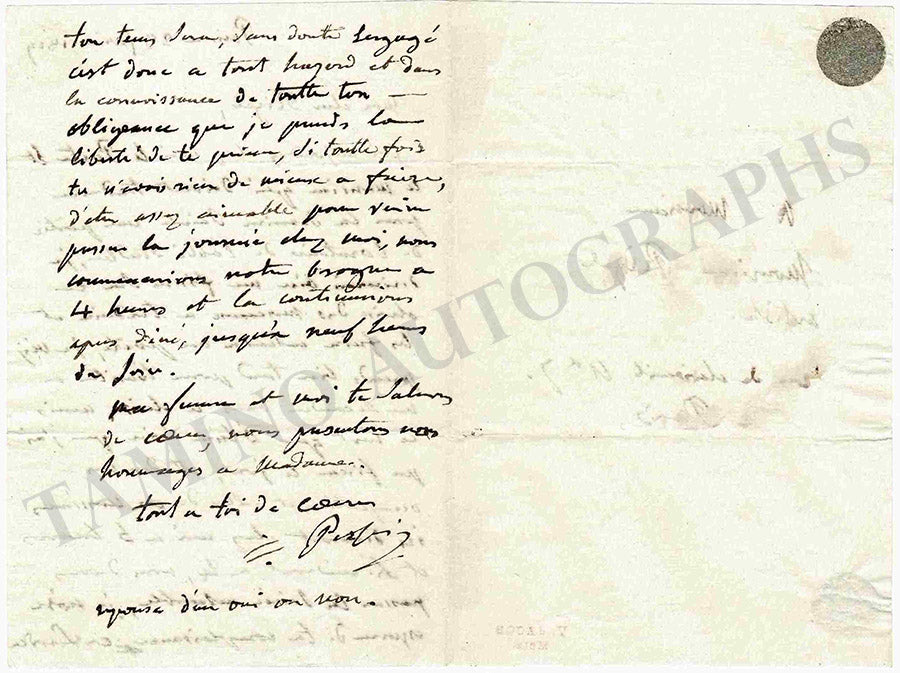 ton tems sera, sans doute Engagé
c'est donc a tout hazard et dans
la connoissance de toutte ton —
obligeance que je prends la
liberté de te prier, si toutte fois
tu n'avois rien de mieux a faire,
d'etre assez aimable pour venir
passer la journée chez moi, nous
commencerions notre besogne a
4 heures et la continuerions
apres diné, jusqu'a neuf heures
du soir.
ma femme et moi te saluons
de coeur, nous presentons nos
hommages a Madame.
tout a toi de coeur
reponse d'un oui ou non.
TAMINO AUTOGRAPHS